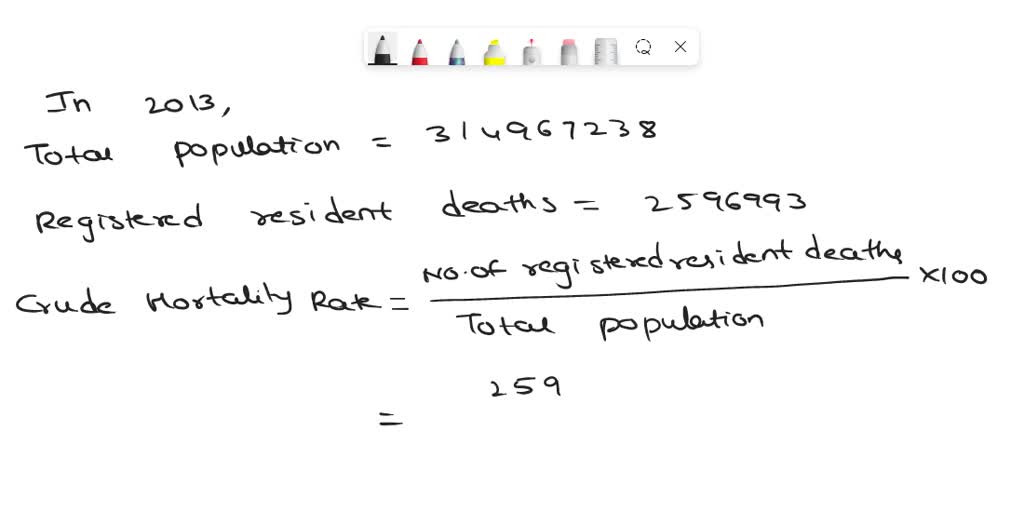 In 2013,
Total population = 314967238
Registered resident deaths = 2596993
Crude Mortality Rate = No. of registered resident deaths / Total population ×100
= 259